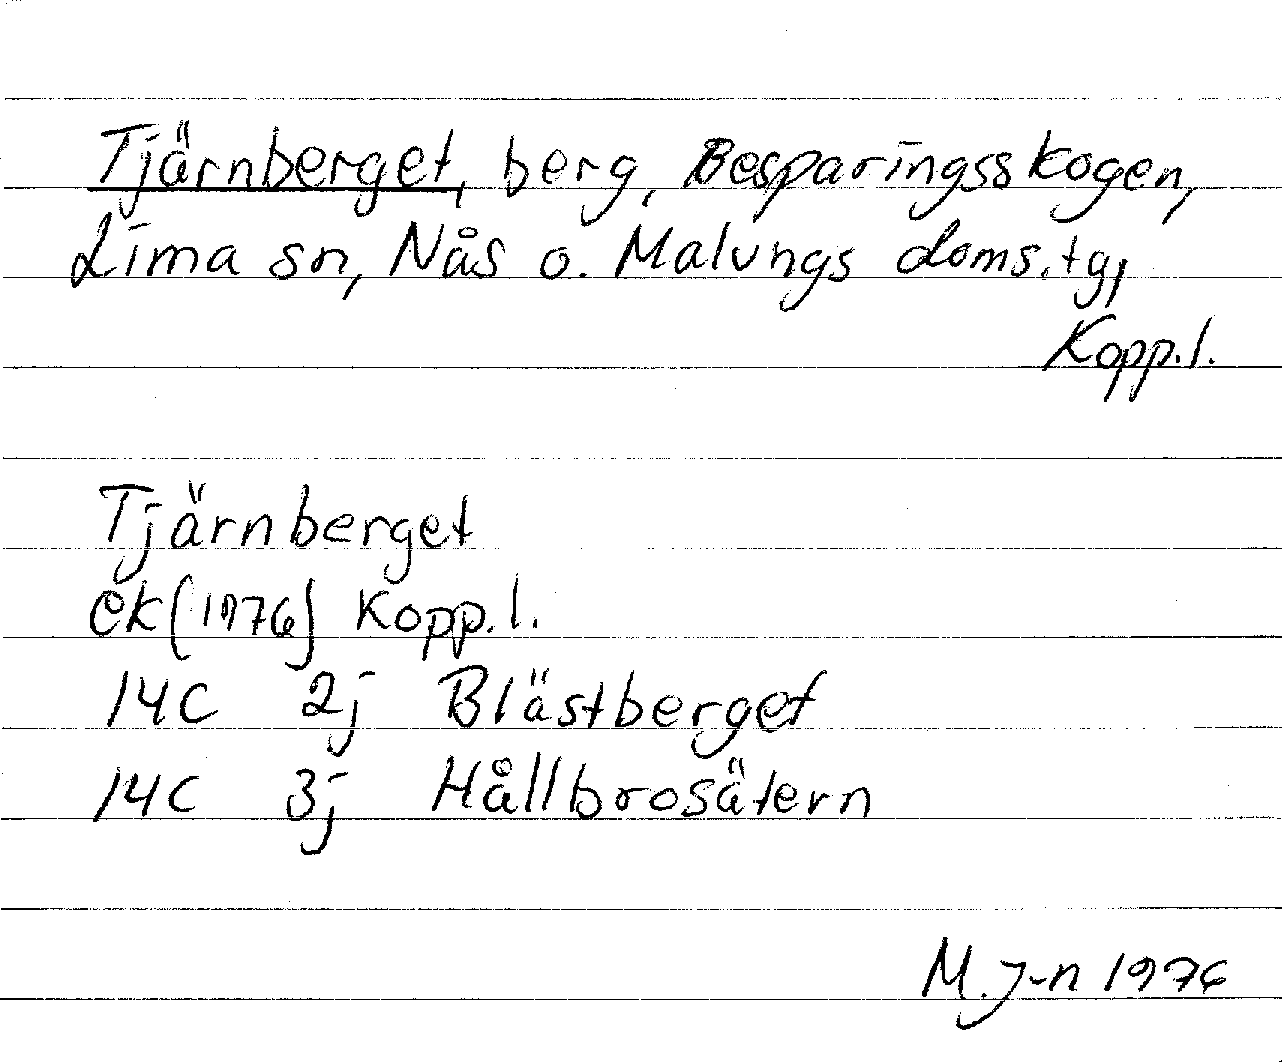 Tjärnberget, berg, Besparingsskogen,
Lima sn, Nås o. Malungs doms.tg,
Kopp.l.
Tjärnberget
ek(1976) Kopp.l.
14C 2j Blästberget
14C 3j Hållbrosätern
M.J-n 1976